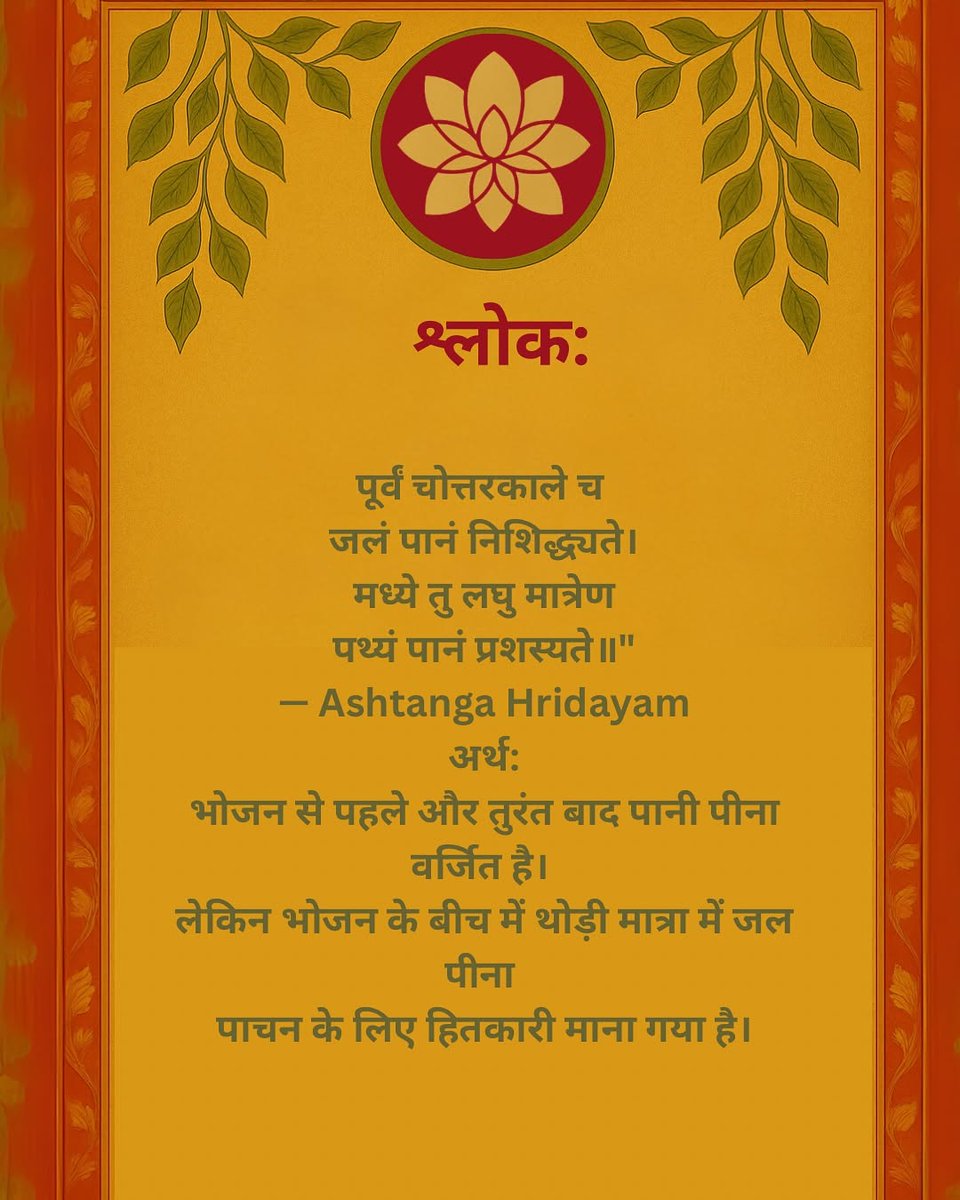 श्लोक:
पूर्वं चोत्तरकाले च
जलं पानं निशिद्ध्यते।
मध्ये तु लघु मात्रेण
पथ्यं पानं प्रशस्यते॥"
— Ashtanga Hridayam
अर्थ:
भोजन से पहले और तुरंत बाद पानी पीना
वर्जित है।
लेकिन भोजन के बीच में थोड़ी मात्रा में जल
पीना
पाचन के लिए हितकारी माना गया है।